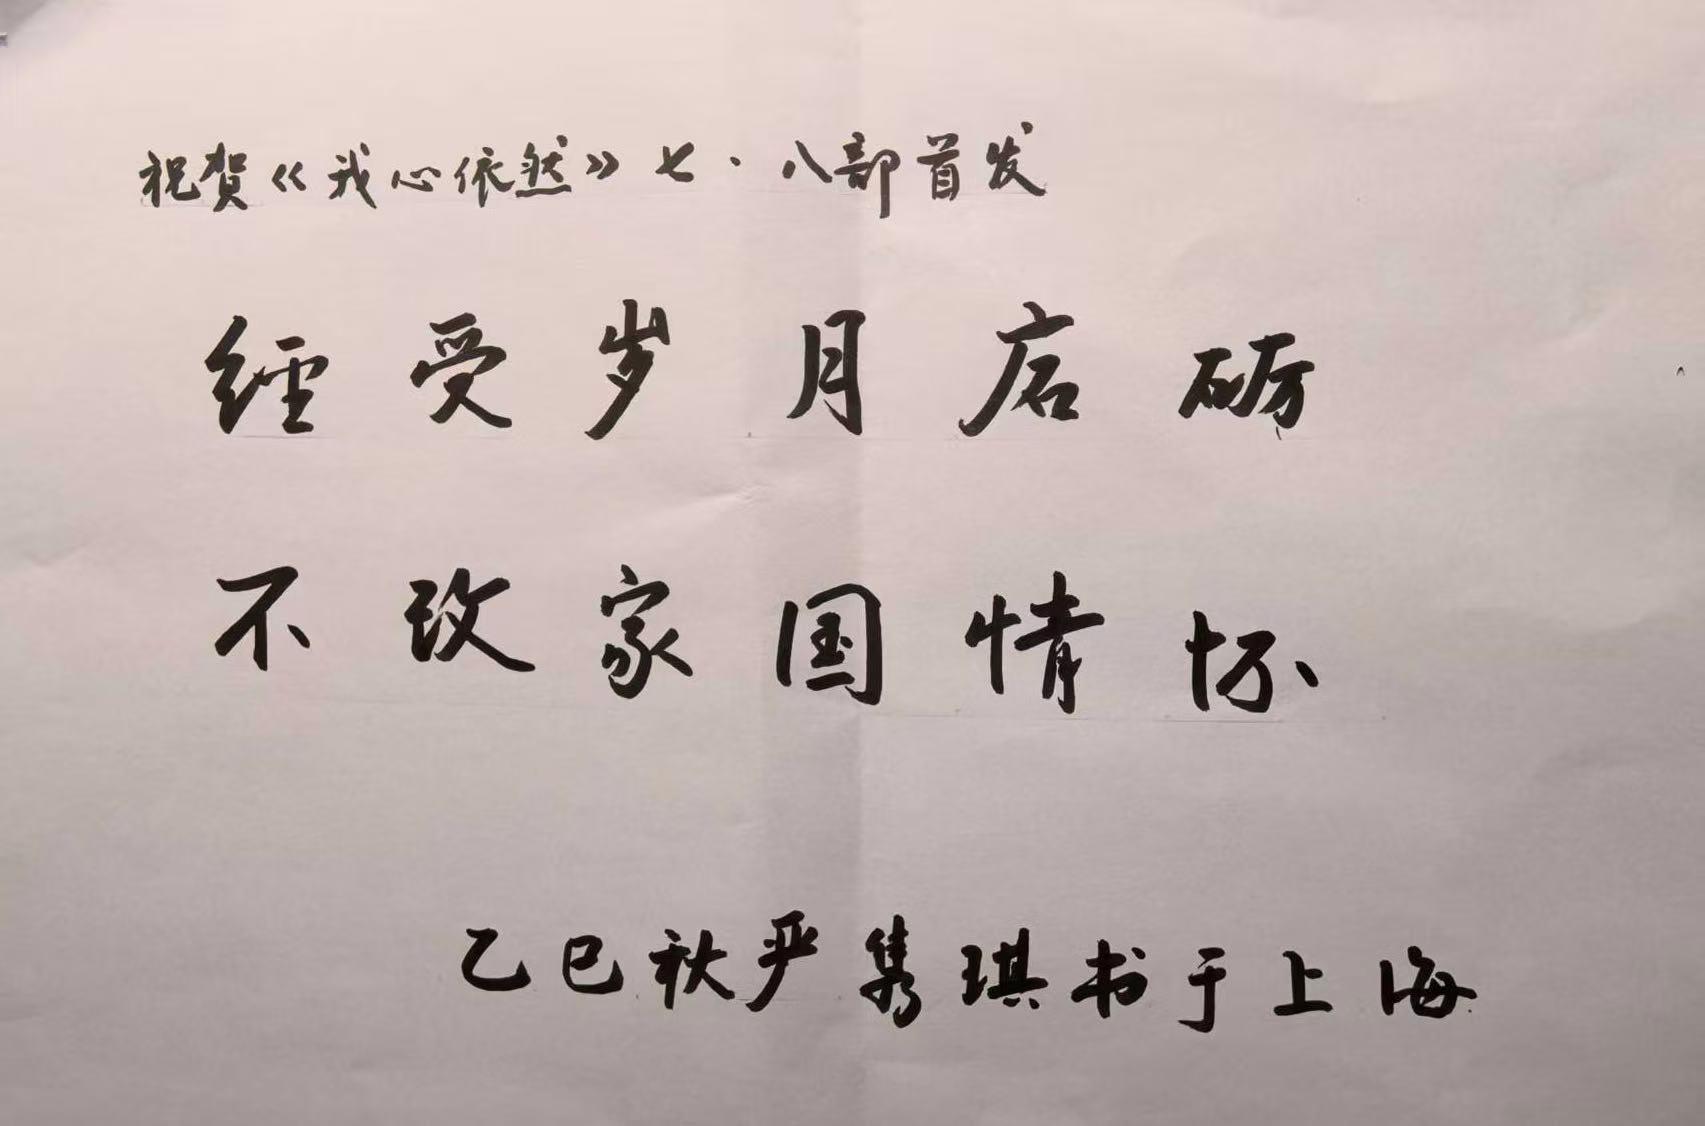 祝贺《我心依然》七·八部首发
经受岁月磨砺
不改家国情怀
乙巳秋严隽琪书于上海